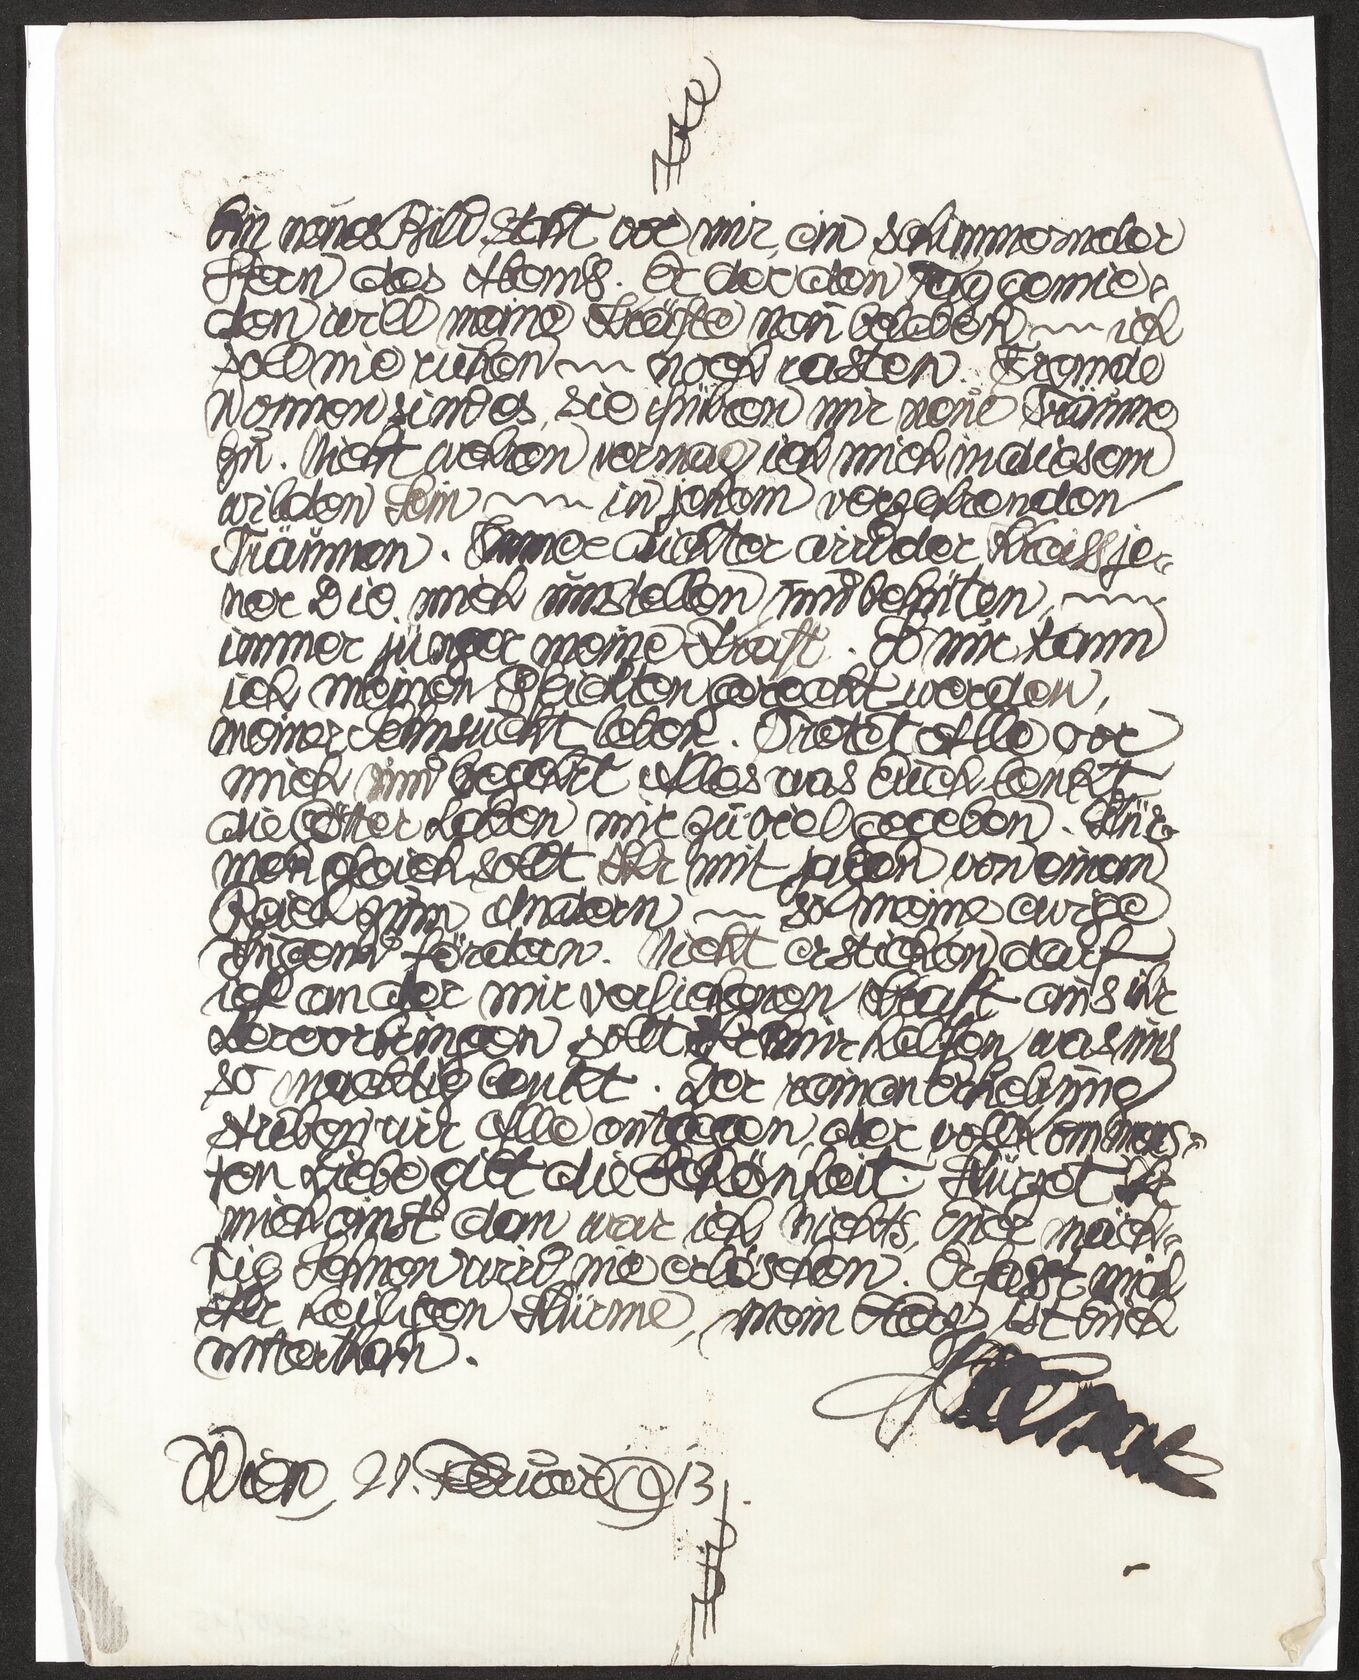 Ein neues Bild steht vor mir, ein schimmernder
Stern des Abends. Er der den Tag gemie-
den will meine Kräfte neu beleben ~ ich
soll nie ruhen ~ noch rasten. Fremde
Wonnen sind es, sie führen mir neue Träume
zu. Nicht wehren vermag ich mich in diesem
wilden Sein ~ in jenem verzehrenden
Träumen. Immer dichter wird der Kreis je-
ner Die mich umstellen und behüten, ~
immer jünger meine Kraft. So nur kann
ich meinen Pflichten gerecht werden,
meiner Sehnsucht leben. Tretet Alle vor
mich und begehrt Alles was Euch lenkt
die Götter haben mir zu viel gegeben. Stür-
men gleich sollt Ihr mit jagen von einem
Reich zum Andern ~ so meine ewige
Jugend fördern. Nicht ersticken darf
ich an der mir verliehenen Kraft aus ihr
hervorbringen sollt Ihr mir helfen was uns
so mächtig lenkt. Der reinen Erhebung
streben wir Alle entgegen, der vollkommens-
ten Liebe gilt die Schönheit. Stürzet Ihr
mich einst dann war ich Nichts, Euer mäch-
tig Sehnen wird nie erlöschen. Erfasst mich
Ihr heiligen Stürme, mein Herz ist Euch
unterthan.
Wien, 21. Februar 1913.